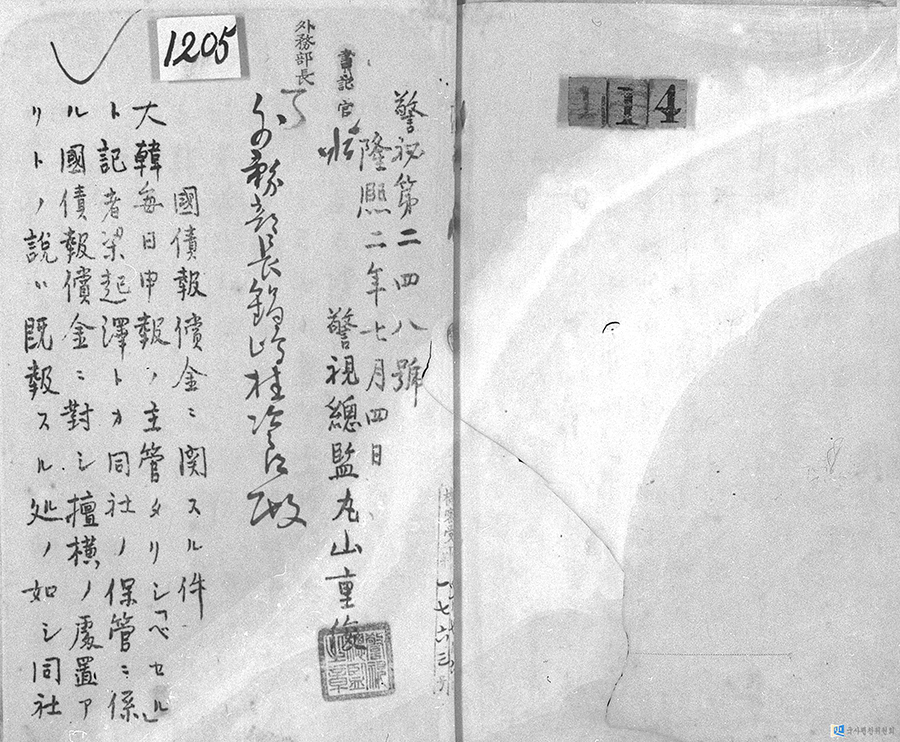 114
警秘第二四八號
隆熙二年七月四日
警視總監丸山重俊
書記官
外務部長
外務部長鍋島桂次郎殿
1205
國債報償金ニ関スル件
大韓毎日申報ノ主管タリシ「ベセル」
ト記者梁起澤トカ同社ノ保管ニ係
ル國債報償金ニ對シ擅横ノ處置ア
リトノ説ハ既報スル処ノ如シ同社
국사편찬위원회